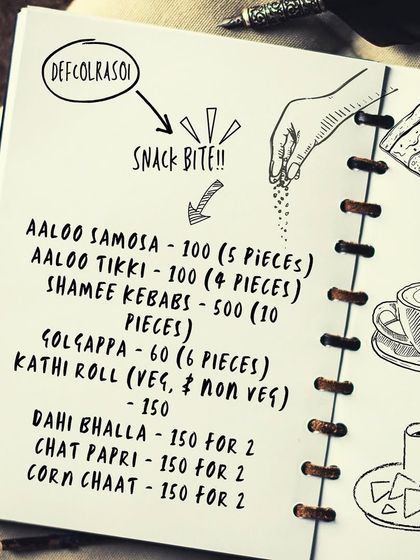 DEFCOLRASOI
SNACK BITE!!
AALOO SAMOSA - 100 (5 PIECES)
AALOO TIKKI - 100 (4 PIECES)
SHAMEE KEBABS - 500 (10
PIECES)
GOLGAPPA - 60 (6 PIECES)
KATHI ROLL (VEG, & NON VEG)
- 150
DAHI BHALLA - 150 FOR 2
CHAT PAPRI - 150 FOR 2
CORN CHAAT - 150 FOR 2